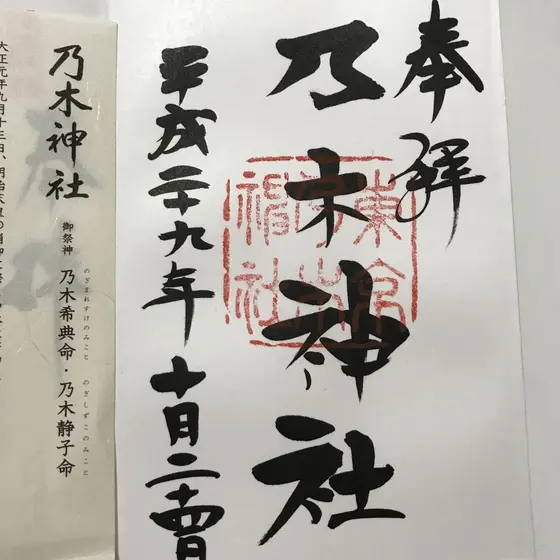 奉拝
乃木神社
東京
神社
平成二十九年 十月二十四日
乃木神社
のぎまれすけのみこと のぎしずこのみこと
御祭神 乃木希典命・乃木静子命
大正元年九月十三日、明治天皇の